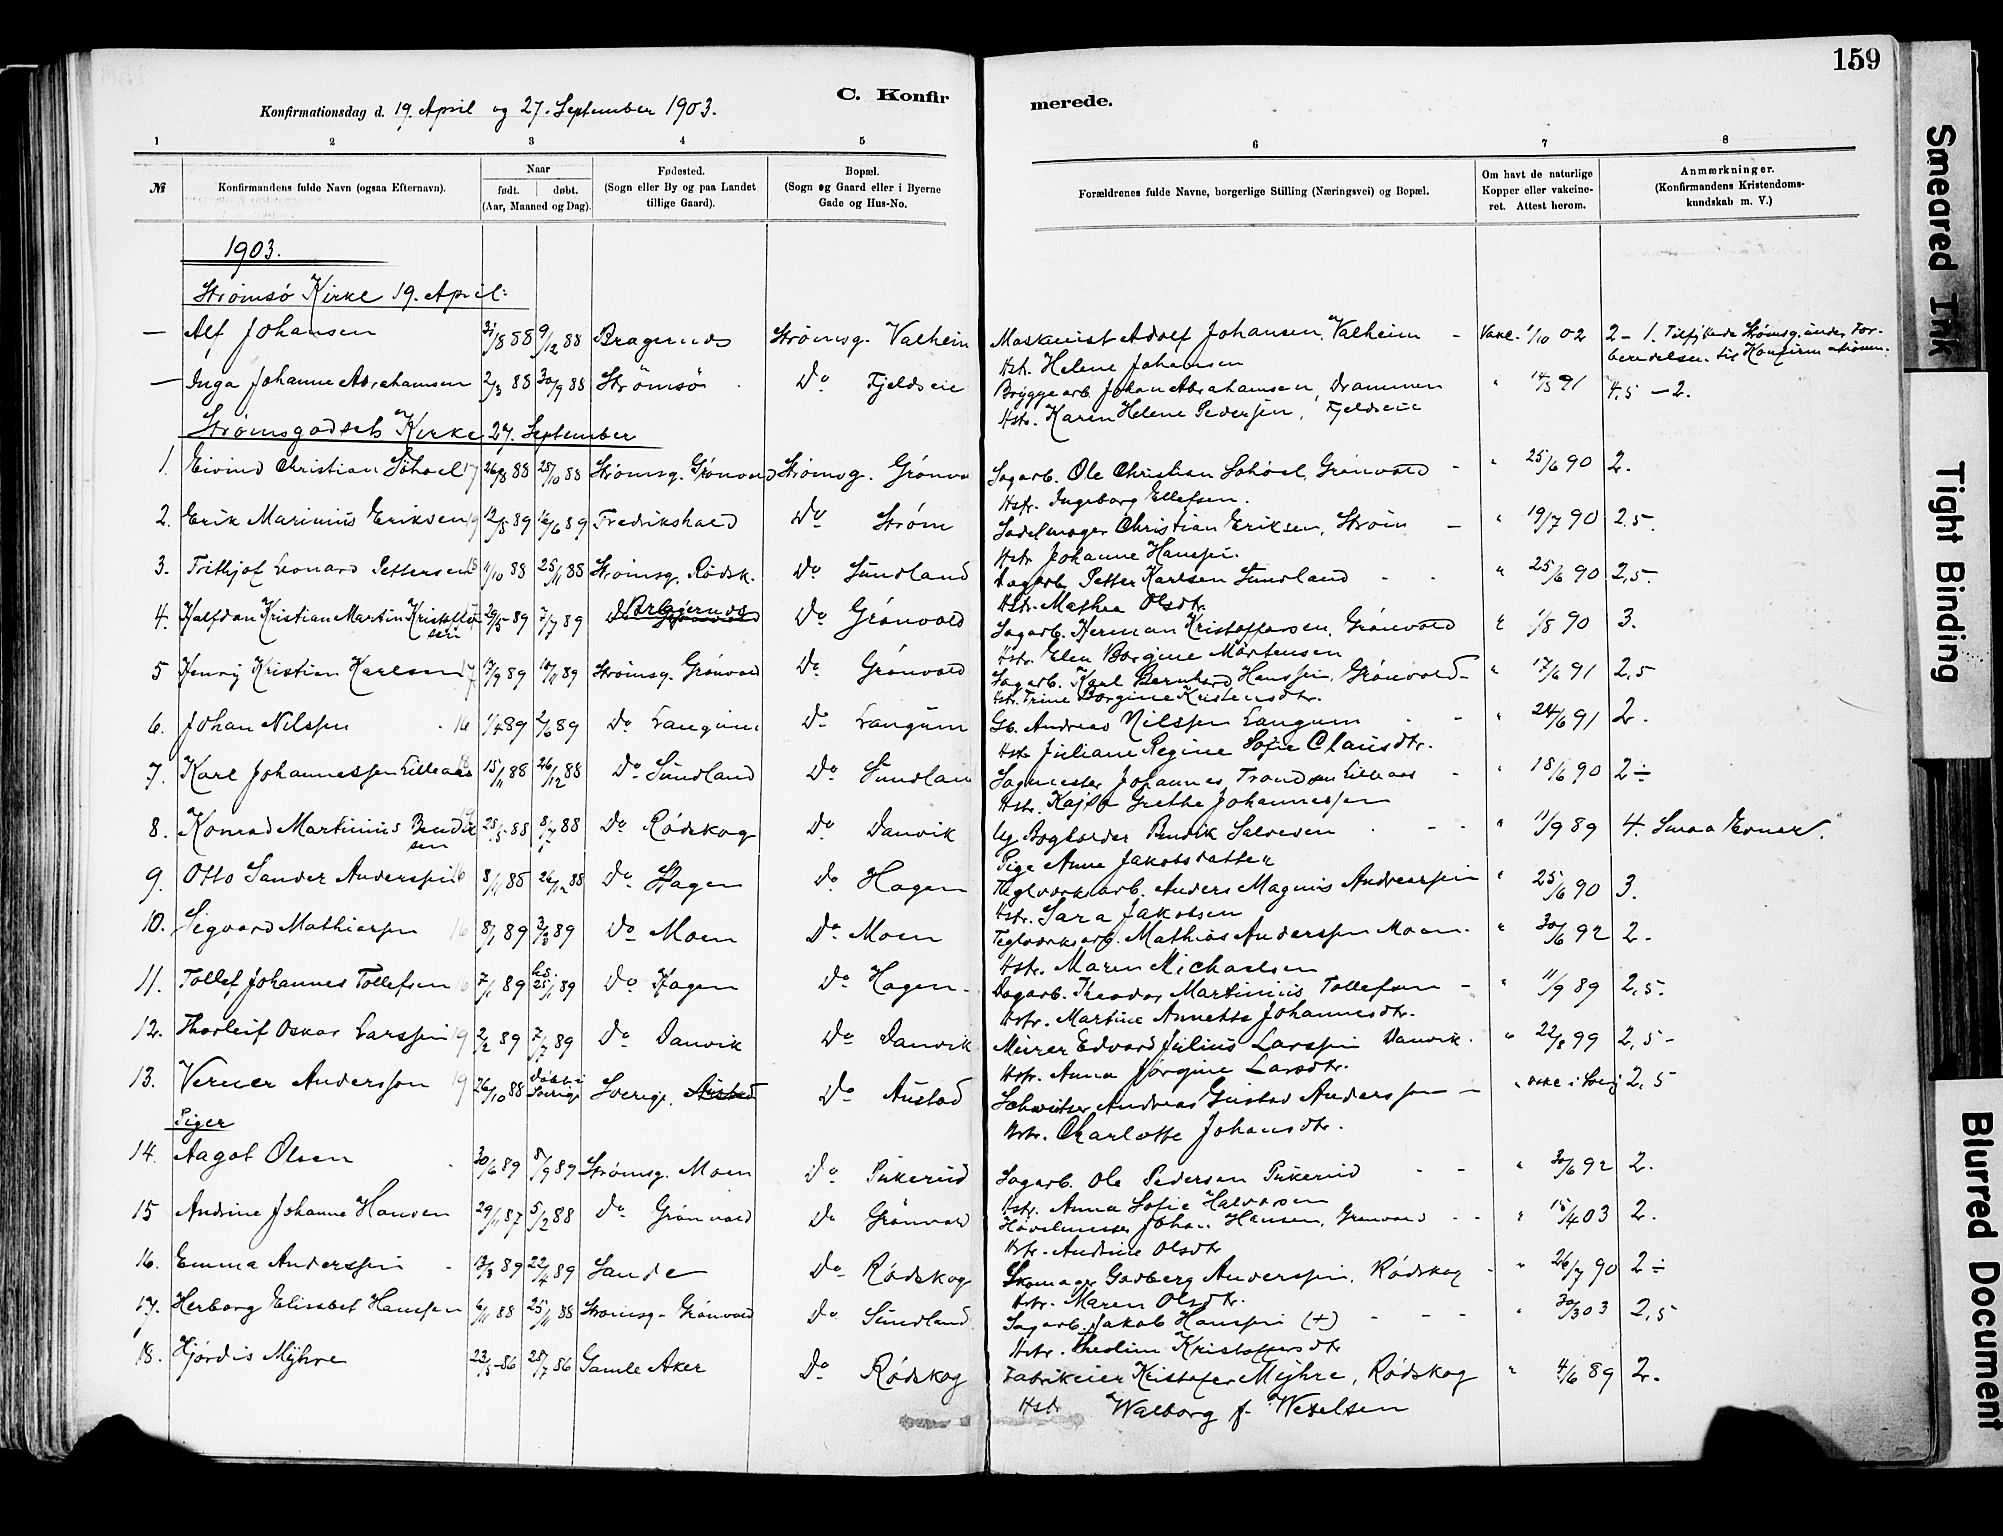 159
C. Konfirmerede.
Konfirmationsdag d. 19. April og 27. September 1903.
1 2 3 4 5 6 7 8
№ Konfirmandens fulde Navn (ogsaa Efternavn). Naar født. døbt. (Aar, Maaned og Dag). Fødested. (Sogn eller By og paa Landet tillige Gaard). Bopæl. (Sogn og Gaard eller i Byerne Gade og Hus-No. Forældrenes fulde Navne, borgerlige Stilling (Næringsvei) og Bopæl. Om havt de naturlige Kopper eller vakcineret. Attest herom. Anmærkninger. (Konfirmandens Kristendomskundskab m. V.)
1903.
Strømsø Kirke 19. April:
— Alf Johansen 31/8 88 9/12 88 Bragernes Strømsg. Valheim Maskinist Adolf Johansen, Valheim – Vakc. 1/10 02 2 – 1. Tilflyttede Strømsg. under For-
Hstr. Helene Johansen beredelsen til Konfirmationen.
— Inga Johanne Abrahamsen 2/3 88 30/9 88 Strømsø Do Fjeldseie Bryggearb. Johan Abrahamsen, Drammen " 14/5 91 4.5 – 2.
Hstr. Karen Helene Pedersen, Fjeldseie
Strømsgodsets Kirke 27. September
1. Eivind Christian Søhoel 17 26/8 88 28/10 88 Strømsg. Grønvold Strømsg. Grønvo Sagarb. Ole Christian Søhoel, Grønvold – " 25/6 90 2.
Hstr. Ingeborg Ellefsen.
2. Erik Marinius Eriksen 19 12/5 89 16/6 89 Fredrikshald Do Strøm Sadelmager Christian Eriksen, Strøm – " 19/7 90 2,5.
Hstr. Johanne Hanssen.
3. Frithjof Leonard Pettersen 18 11/10 88 25/11 88 Strømsg. Rødsk. Do Sundland Dagarb. Petter Karlsen Sundland " 25/6 90 2,5.
Hstr. Mathea Olsdtr.
4. Halfdan Kristian Martin Kristoffer- 29/5 89 7/7 89 Bragernes Do Grønvold Sagarb. Herman Kristoffersen, Grønvold " 1/8 90 3.
sen Hstr. Elen Borgine Mortensen
5 Henry Kristian Karlsen 17 17/9 89 10/11 89 Strømsg. Grønvold Do Grønvold Sagarb. Karl Bernhard Hanssen, Grønvold – " 17/6 91 2,5
Hstr. Trine Borgine Kristensdtr.
6. Johan Nilssen 16 1/4 89 2/6 89 Do Langum Do Langum Gb. Andreas Nilssen Langum " 24/6 91 2.
Hstr. Juliane Regine Sofie Clausdtr.
7. Karl Johannessen Lilleaas 15/11 88 26/12 88 Do Sundland Do Sundlan Sagmester Johannes Trondsen Lilleaas – " 18/6 90 2 ÷
Hstr. Kajsa Grethe Johannessen
8. Konrad Martinius Bendik- 28/5 88 8/7 88 Do Rødskog Do Danvik Ug Bogholder Bendik Salvesen " 11/9 89 4. Smaa Evner.
sen Pige Anne Jakobsdatter
9. Otto Sander Anderssen 16 8/11 88 26/12 88 Do Hagen Do Hagen Teglværksarb. Anders Magnus Andreassen " 25/6 90 3.
Hstr. Sara Jakobsen
10. Sigvard Mathiassen 16 8/1 89 3/3 89 Do Moen Do Moen Teglværksarb. Mathias Anderssen Moen. " 30/6 92 2.
Hstr. Maren Michaelsen
11. Tollef Johannes Tollefsen 16 7/1 89 hd. 25/1 89 Do Hagen Do Hagen Dagarb. Theodor Martinius Tollefsen – " 11/9 89 2,5.
Hstr. Martine Annette Johannesdtr.
12. Thorleif Oskar Larssen 19 2/2 89 7/7 89 Do Danvik Do Danvik Murer Edvard Julius Larssen Danvik. " 22/8 99 2,5 –
Hstr. Anna Jørgine Larsdtr.
13. Verner Andersson 19 26/10 88 Døbt i Sverige Sverige. Austad Do Austad Schweitser Andreas Gustav Andersson – " vakc i Sverig 2,5
Hstr. Charlotte Johansdtr.
Piger
14. Aagot Olsen 30/6 89 8/9 89 Strømsg. Moen Do Pukerud Sagarb. Ole Pedersen Pukerud " 30/6 92 2.
Hstr. Anna Sofie Halvorsen
15 Andrine Johanne Hansen 29/11 87 5/2 88 Do Grønvold Do Grønvold Høvelmester Johan Hansen, Grønvold " 15/4 03 2.
Hstr. Andrine Olsdtr
16. Emma Anderssen 13/3 89 22/4 89 Sande Do Rødskog Skomager Godberg Anderssen, Rødskog " 26/7 90 2 ÷
Hstr. Maren Olsdtr.
17. Herborg Elisabet Hanssen 6/11 88 25/11 88 Strømsg. Grønvold Do Sundland Sagarb. Jakob Hanssen (+) " 30/3 03 2,5
Hstr. Theoline Kristoffersdtr
18. Hjørdis Myhre 23/5 86 25/7 86 Gamle Aker Do Rødskog Fabrikeier Kristofer Myhre, Rødskog " 4/6 89 2.
Hstr Walborg f. Wexelsen
Smeared Ink
Tight Binding
Blurred Document